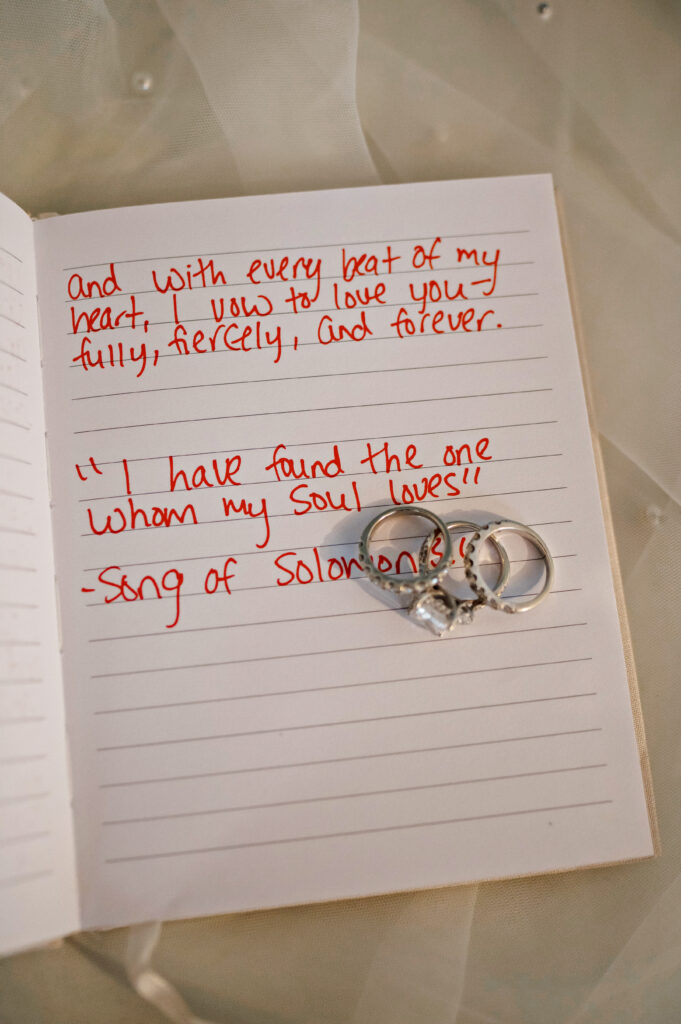 and with every beat of my
heart, I vow to love you-
fully, fiercely, and forever.
"I have found the one
whom my soul loves"
-Song of Solomon